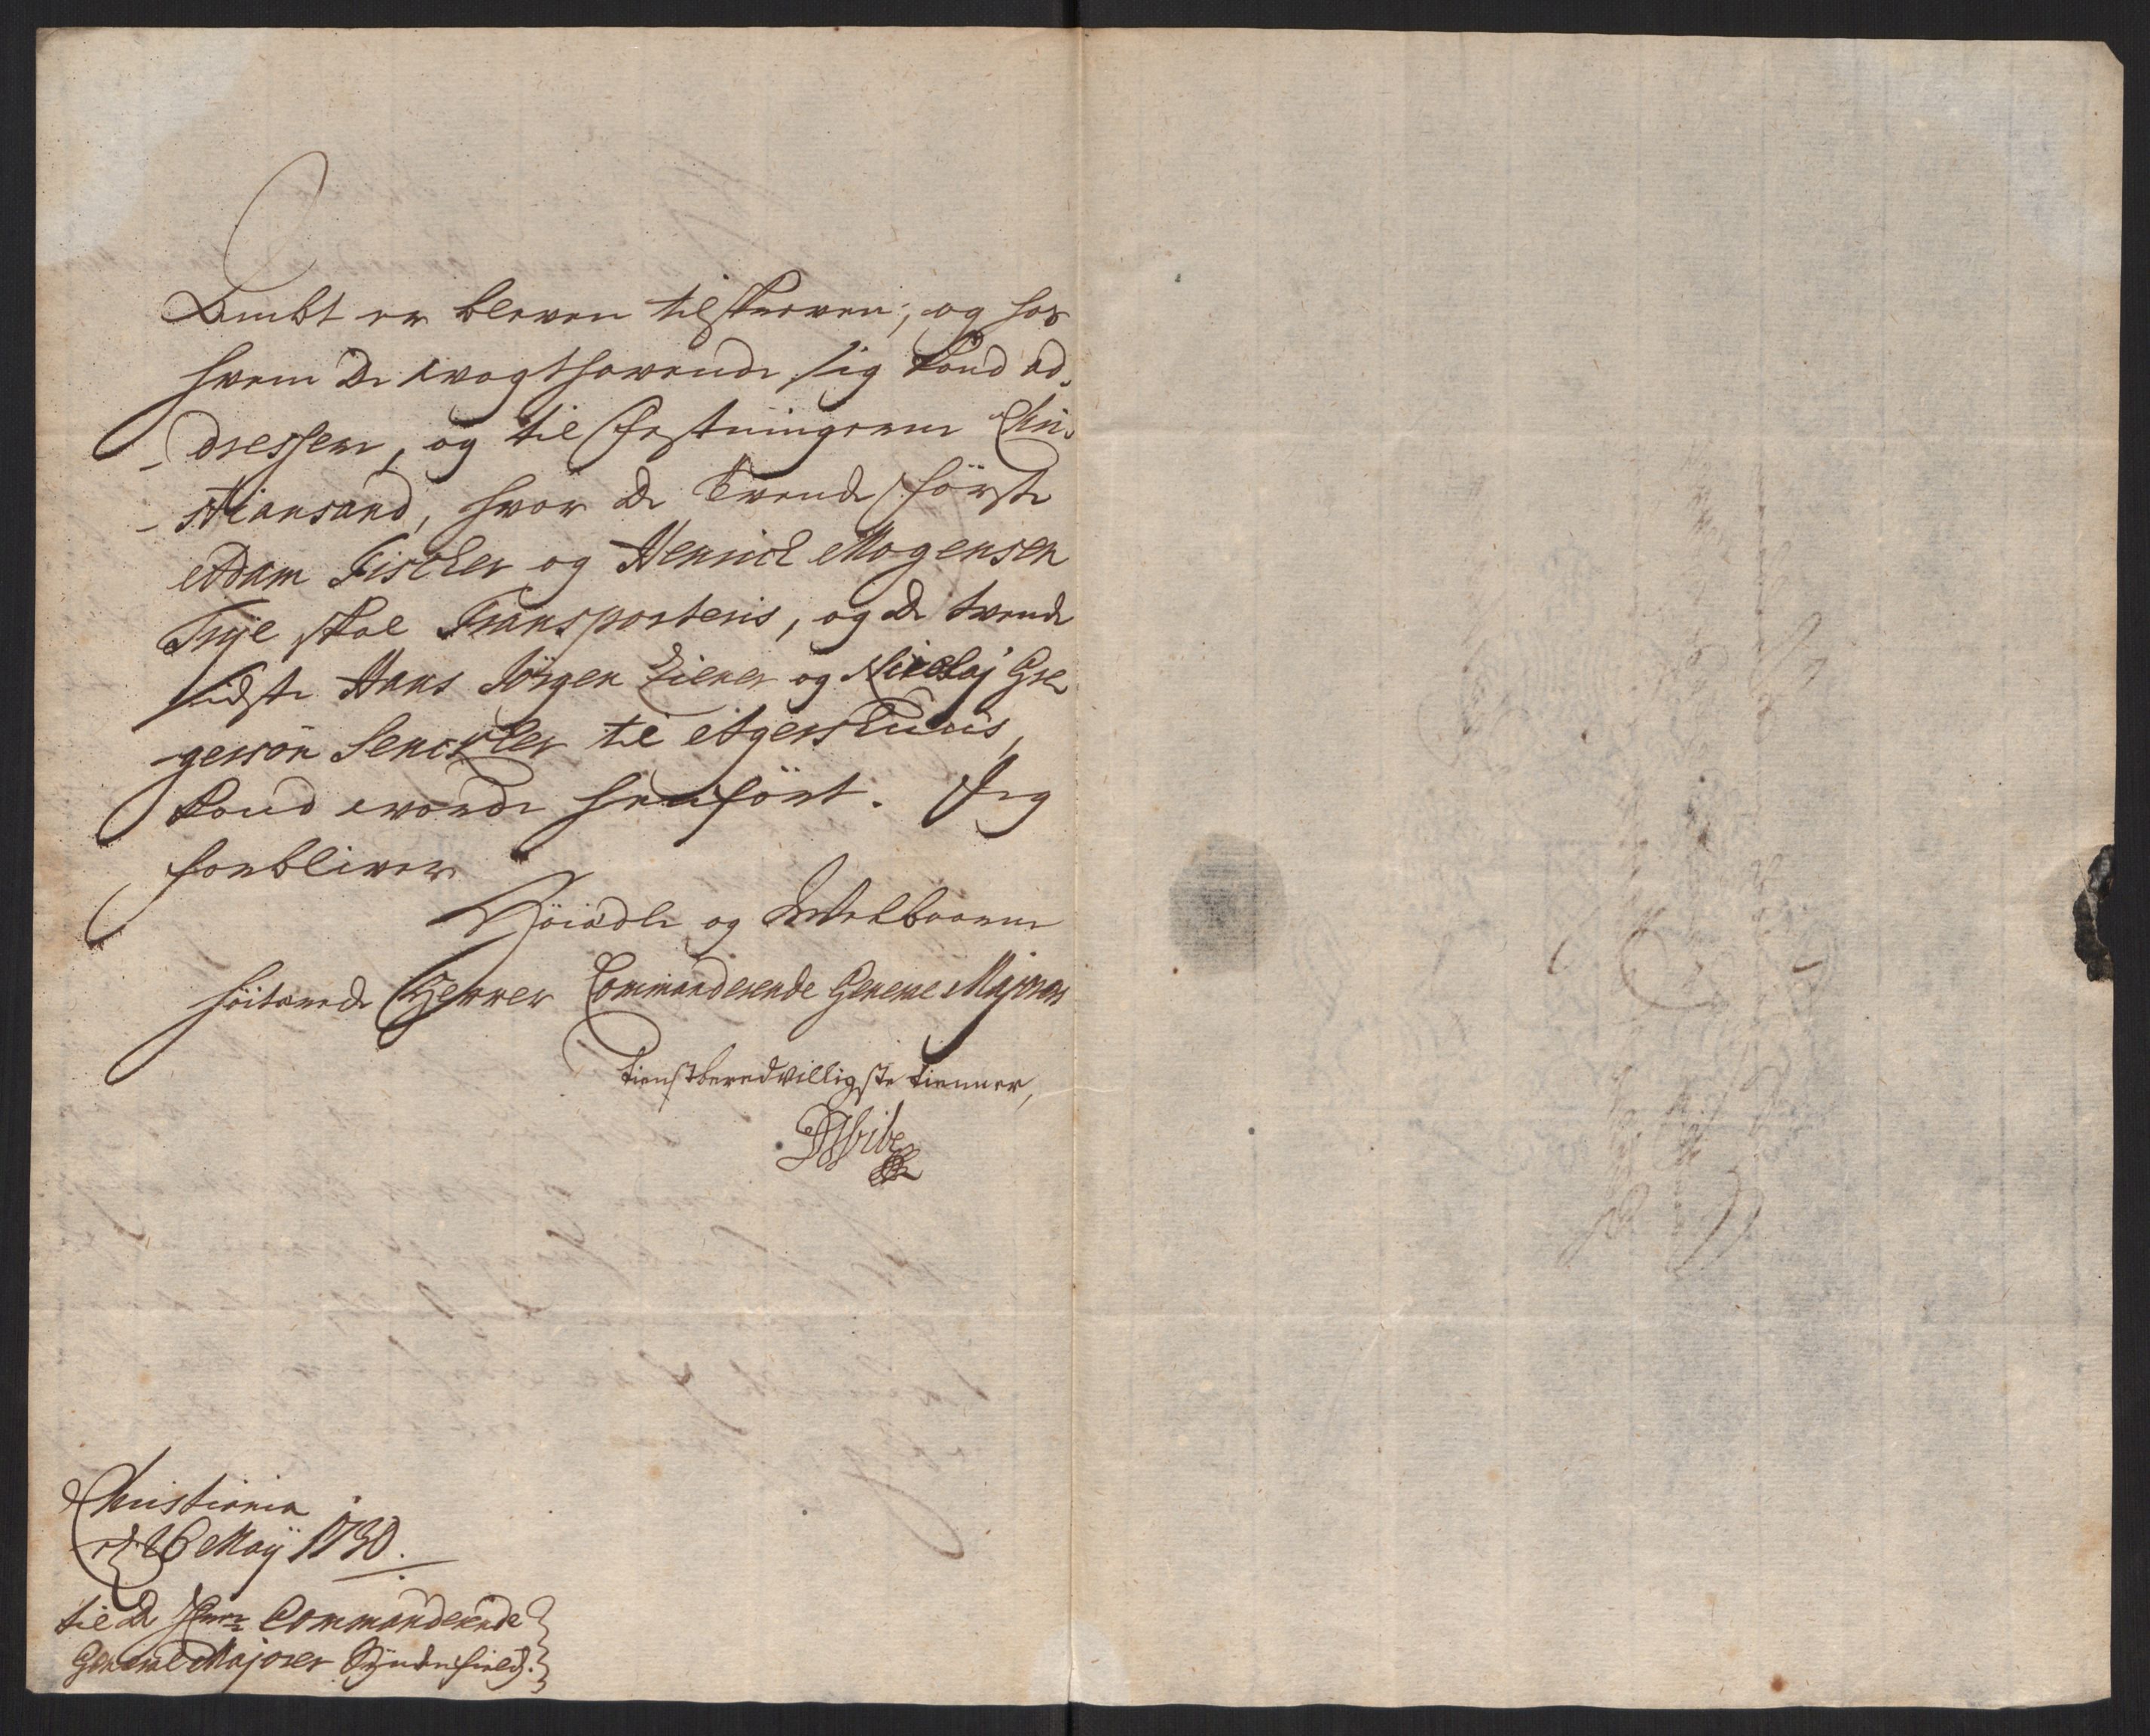 Ambt er bleven tilskreven, og hos
hvem De vagthavende sig kand ad-
-dressere, og til Festningerne Chri-
-stiansand, hvor De Tvende første
Adam Fischer og Henrich Mogensen
Frye skal Transporteris, og De tvende
sidste Hans Jörgen Ziener og Nicolaj Gre
-gersön Senckler til Agershuus,
kand worde henfört. Jeg
forbliver
Höiædle og Welbaarne
höitærede Herrer Commanderende General Majorers
tienstberedvilligste tienner,
DWibe
Christiania
d 26 Maÿ 1730.
til De Herrer Commanderende
General Majorer Syndenfields.